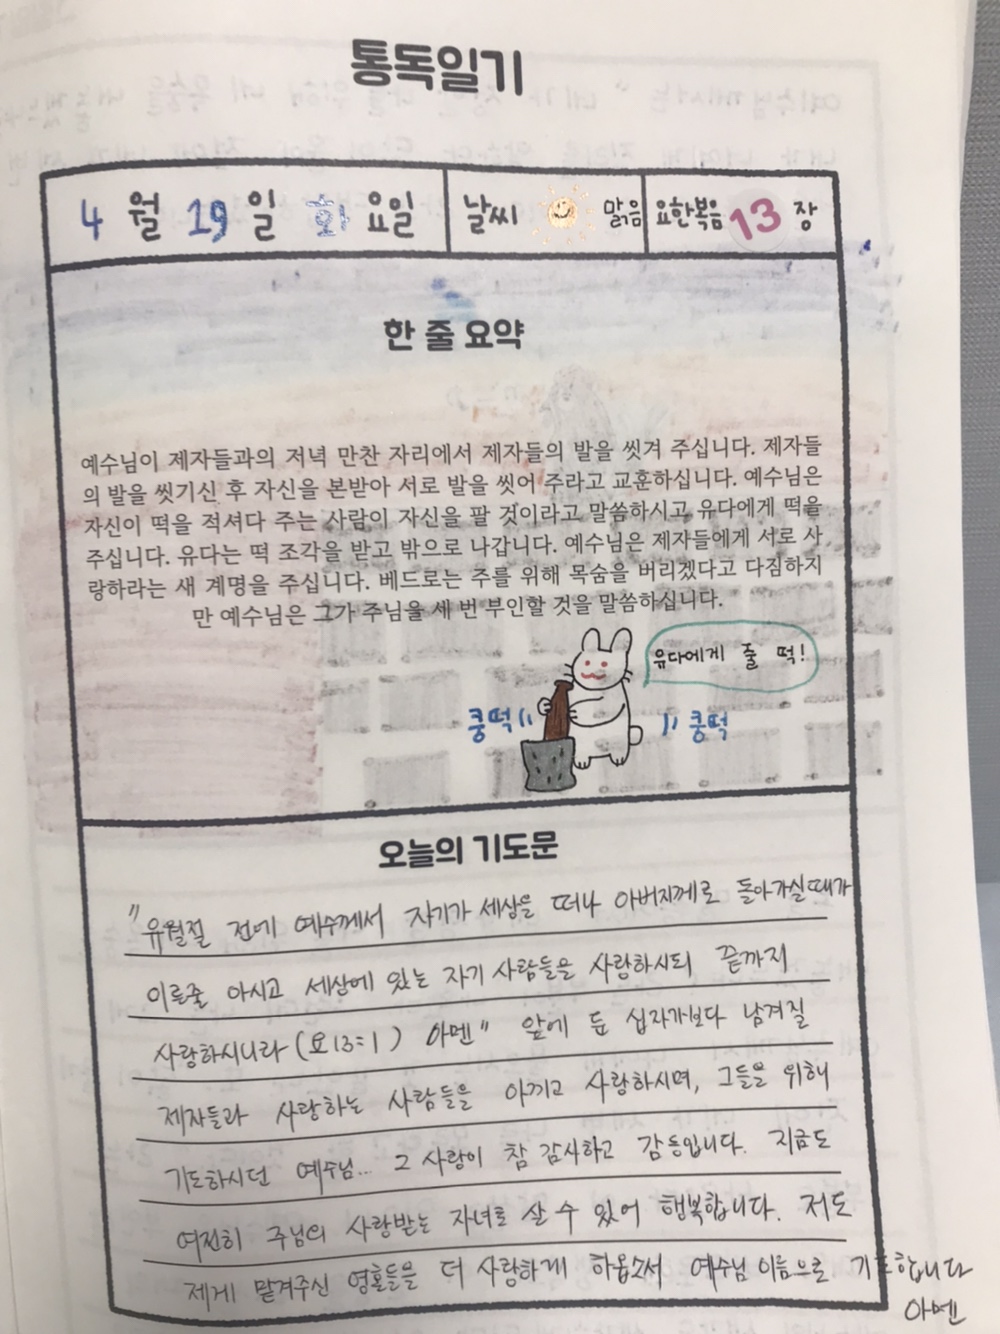 통독일기
4월 19일 화요일 날씨 맑음 요한복음 13장
한 줄 요약
예수님이 제자들과의 저녁 만찬 자리에서 제자들의 발을 씻겨 주십니다. 제자들
의 발을 씻기신 후 자신을 본받아 서로 발을 씻어 주라고 교훈하십니다. 예수님은
자신이 떡을 적셔다 주는 사람이 자신을 팔 것이라고 말씀하시고 유다에게 떡을
주십니다. 유다는 떡 조각을 받고 밖으로 나갑니다. 예수님은 제자들에게 서로 사
랑하라는 새 계명을 주십니다. 베드로는 주를 위해 목숨을 버리겠다고 다짐하지
만 예수님은 그가 주님을 세 번 부인할 것을 말씀하십니다.
유다에게 줄 떡!
쿵떡 쿵떡
오늘의 기도문
"유월절 전에 예수께서 자기가 세상을 떠나 아버지께로 돌아가실 때가
이른줄 아시고 세상에 있는 자기 사람들을 사랑하시되 끝까지
사랑하시니라 (요13:1) 아멘" 앞에 둔 십자가보다 남겨질
제자들과 사랑하는 사람들을 아끼고 사랑하시며, 그들을 위해
기도하시던 예수님... 그 사랑이 참 감사하고 감동입니다. 지금도
여전히 주님의 사랑받는 자녀로 살 수 있어 행복합니다. 저도
제게 맡겨주신 영혼들을 더 사랑하게 하옵소서 예수님 이름으로 기도합니다
아멘